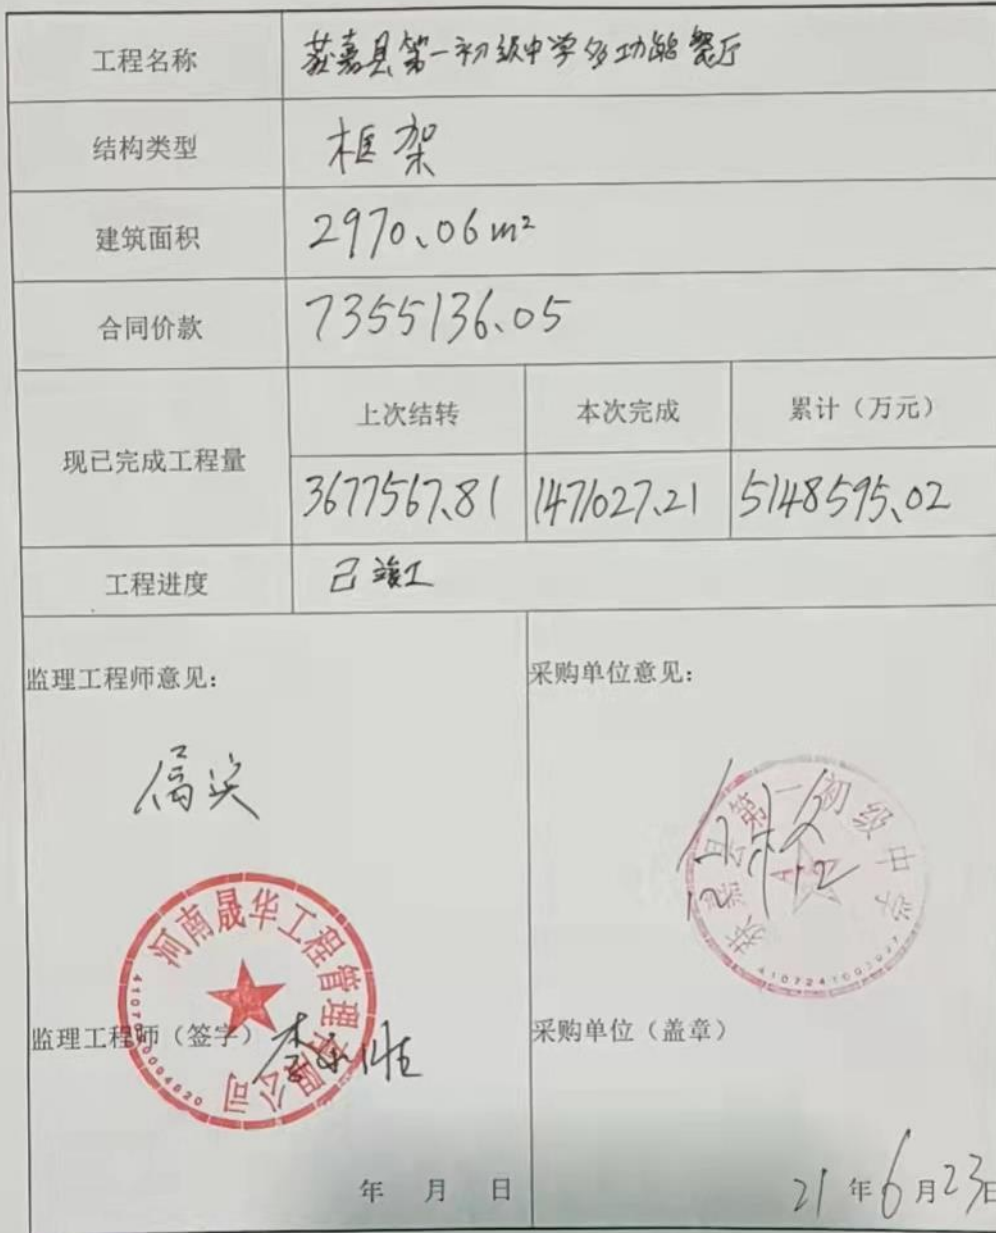 工程名称 获嘉县第一初级中学多功能餐厅
结构类型 框架
建筑面积 2970、06m²
合同价款 7355136、05
现已完成工程量
上次结转 本次完成 累计（万元）
3677567、81 1471027、21 5148595、02
工程进度 已竣工
监理工程师意见： 采购单位意见：
属实
河南晟华工程管理有限公司
获嘉县第一初级中学
监理工程师（签字） 采购单位（盖章）
年 月 日 21年6月23日